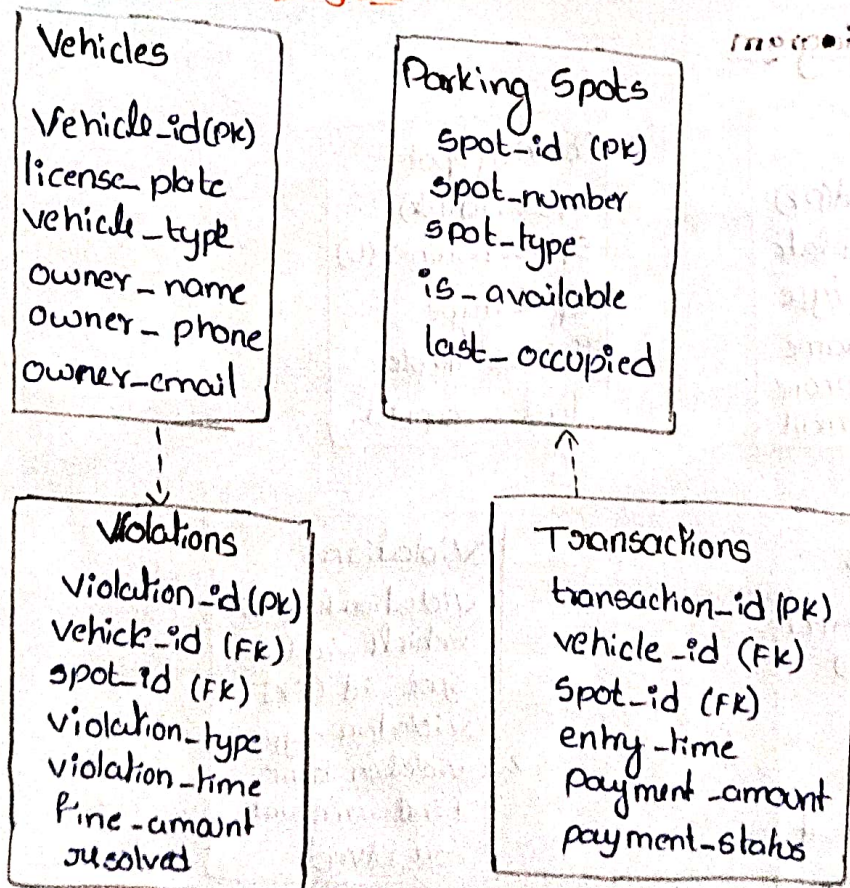 Vehicles
Vehicle_id(PK)
license_plate
vehicle_type
owner_name
owner_phone
owner_email
Parking Spots
spot_id (PK)
spot_number
spot_type
is_available
last_occupied
Violations
violation_id (PK)
vehicle_id (FK)
spot_id (FK)
violation_type
violation_time
fine_amount
resolved
Transactions
transaction_id (PK)
vehicle_id (FK)
spot_id (FK)
entry_time
payment_amount
payment_status